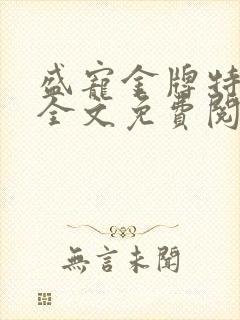 盛寵金牌特
全文免費閱
無言未聞